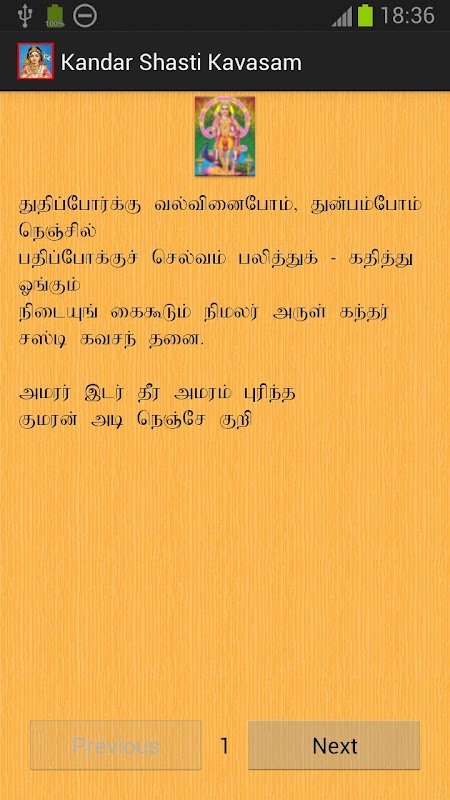 100%
18:36
Kandar Shasti Kavasam
துதிப்போர்க்கு வல்வினைபோம், துன்பம்போம்
நெஞ்சில்
பதிப்போக்குச் செல்வம் பலித்துக் - கதித்து
ஓங்கும்
நிடையுங் கைகூடும் நிமலர் அருள் கந்தர்
சஸ்டி கவசந் தனை.
அமரர் இடர் தீர அமரம் புரிந்த
குமரன் அடி நெஞ்சே குறி
Previous
1
Next